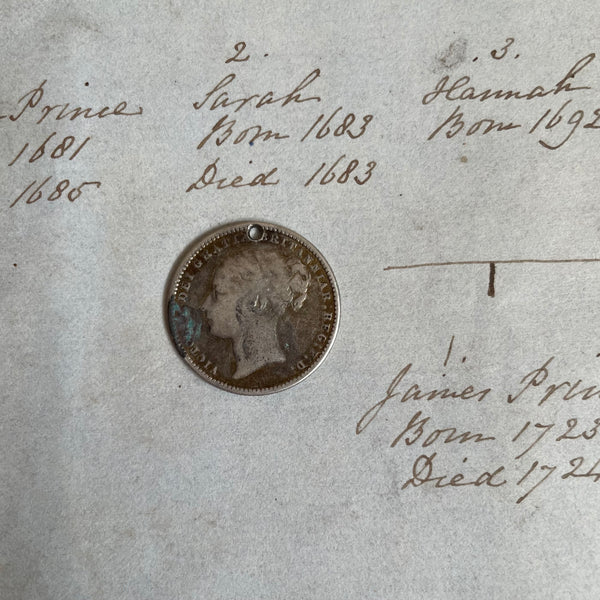 2.
3.
Prince
Sarah
Hannah
1681
Born 1683
Born 1692
1685
Died 1683
VICTORIA DEI GRATIA BRITANNIAR: REG: F: D:
1.
James
Born 1723
Died 1724